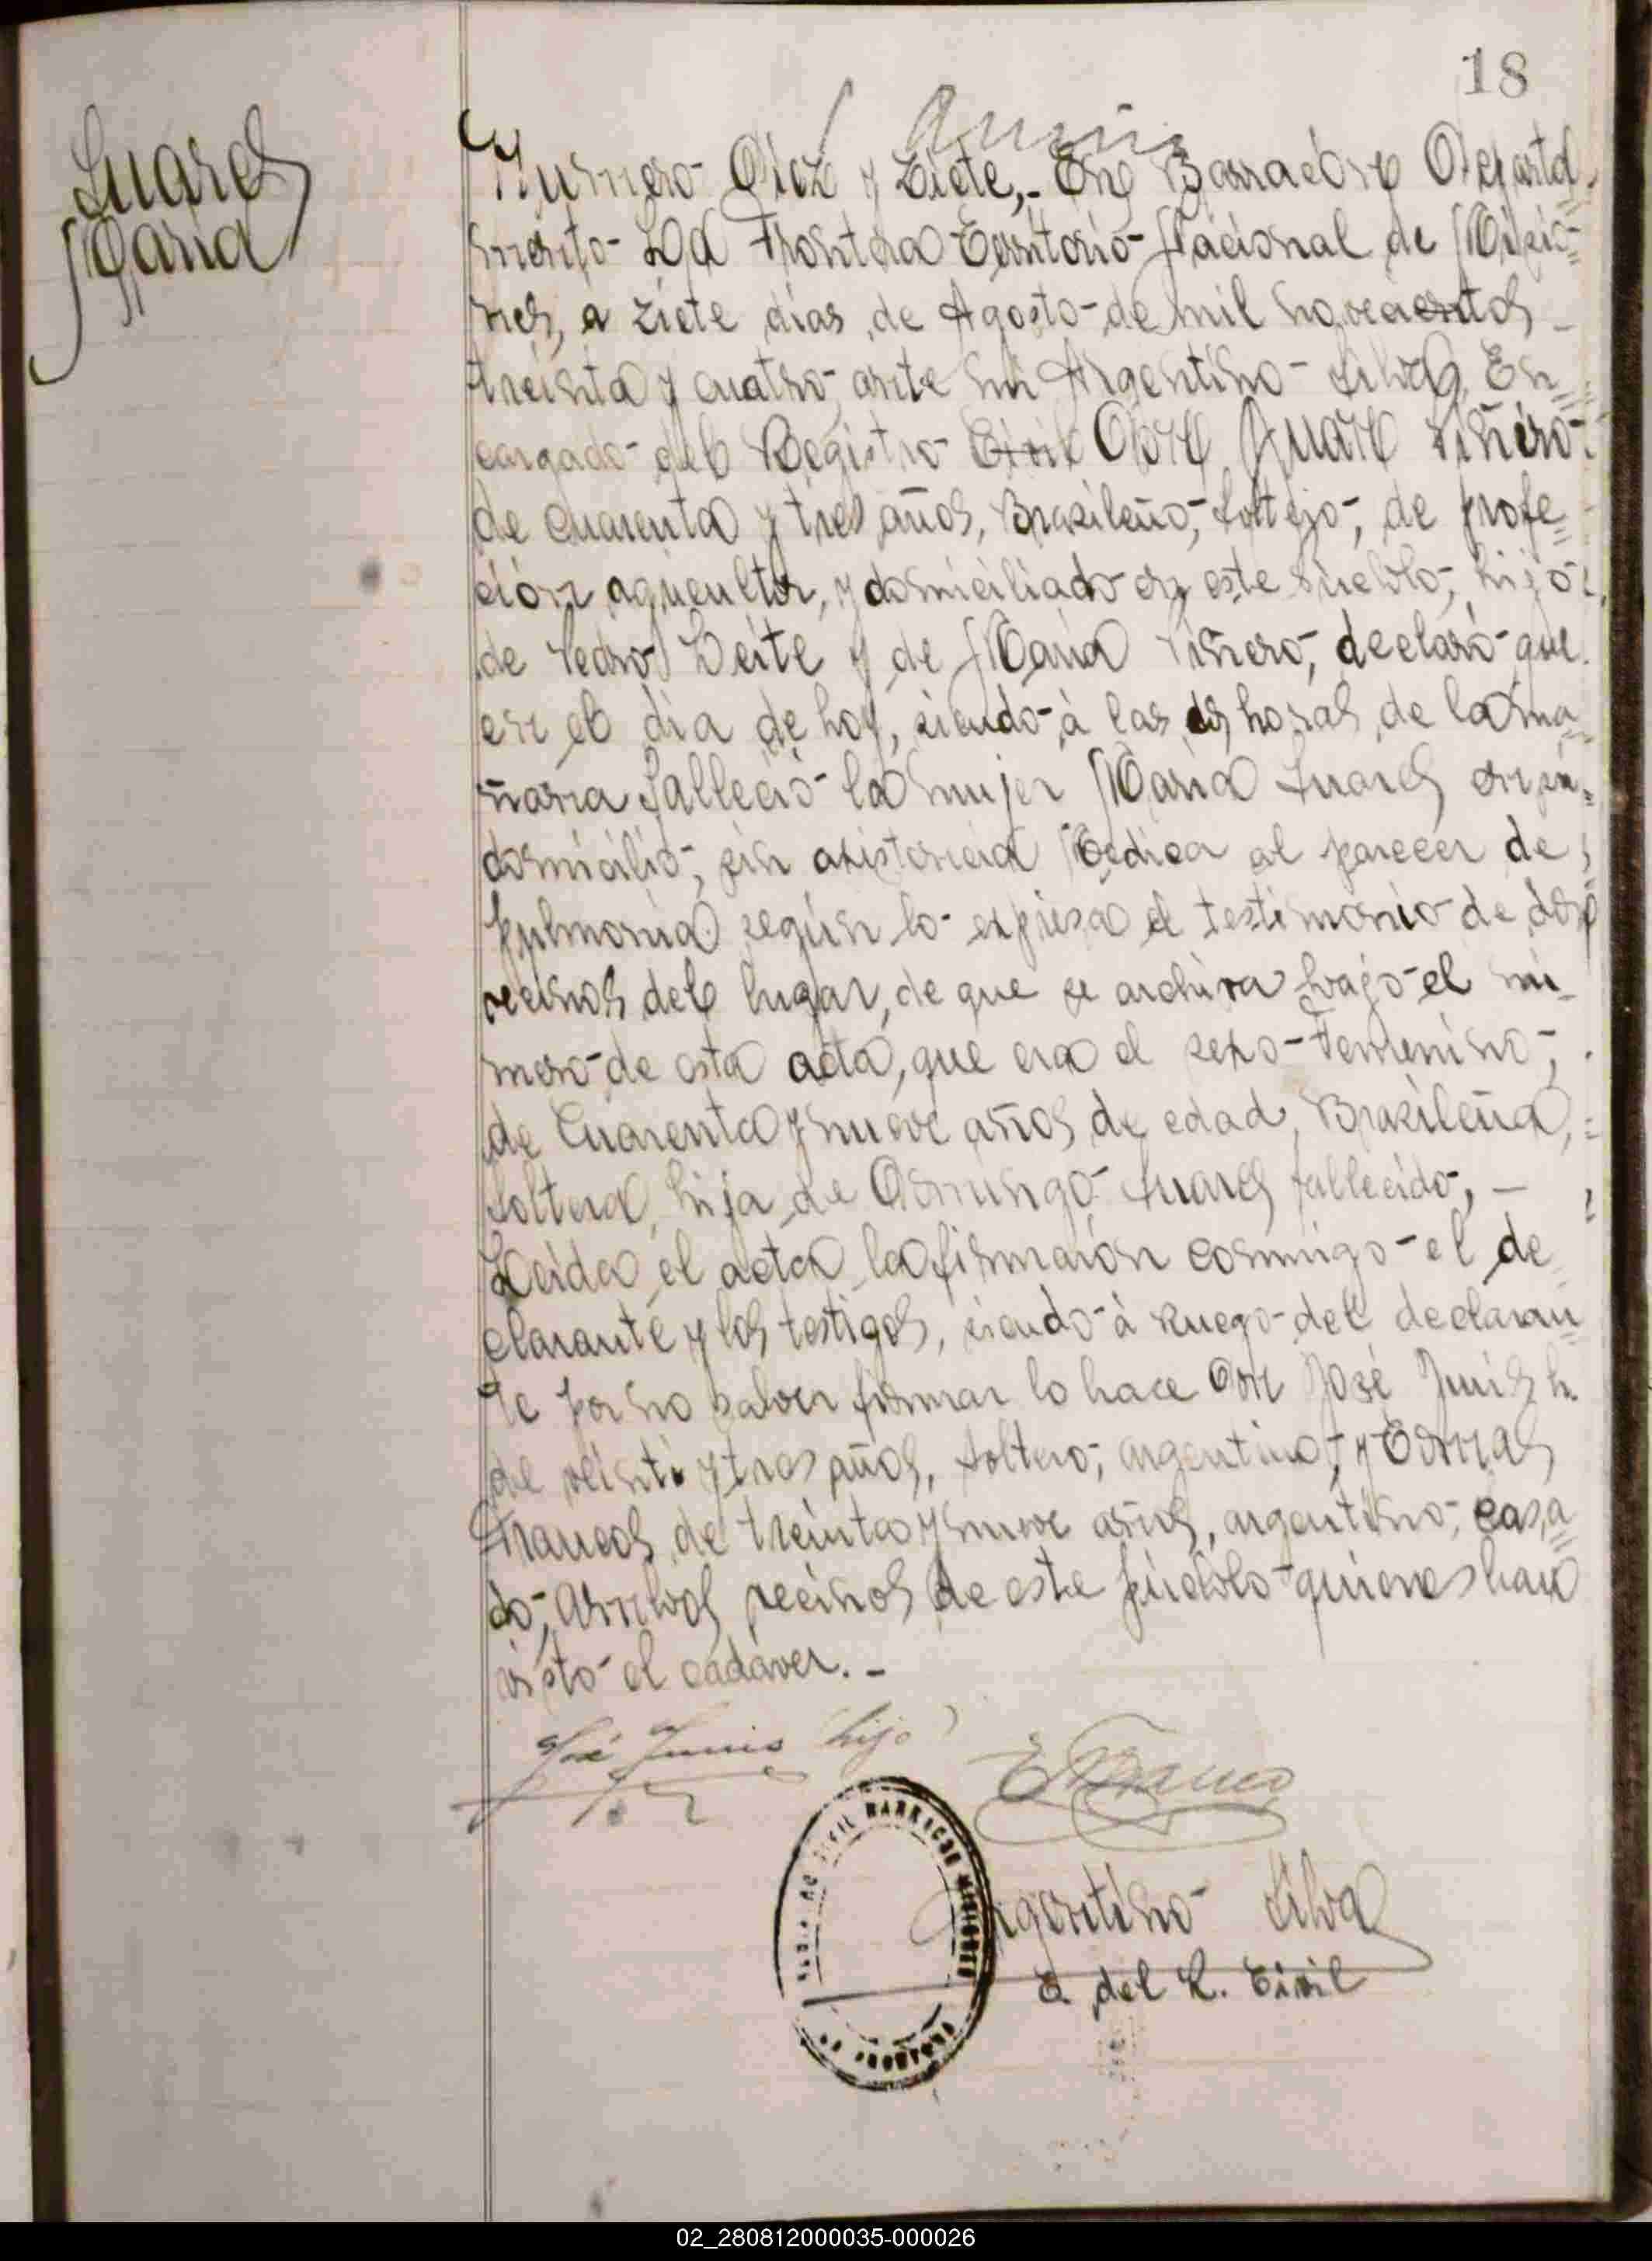 18
Suares
Maria
Numero Diez y Ziete,- En Barracón Departa-
mento La Frontera Territorio Nacional de Micio=
nes, a ziete dias de Agosto de mil novecientos
treinta y cuatro, ante mi Argentino Silva, En
cargado del Registro Civil Don Juan Piñero
de cuarenta y tres años, Brazileño, soltero, de profe=
ción agricultor, y domiciliado en este pueblo, hijo
de Pedro Leite y de Maria Piñero, declaró que
en el dia de hoy, ziendo à las dos horas de la ma=
ñana falleció la mujer Maria Suares en su
domicilio, sin asistencia Medica al parecer de
pulmonia según lo expresa el testimonio de dos
vecinos del lugar, de que se archiva bajo el nu-
mero de esta acta, que era el sexo Femenino,
de Cuarenta y nueve años de edad, Brazileña,
soltera, hija de Domingo Suares fallecido, —
Leida el acta la firmaron conmigo el de
clarante y los testigos, siendo à ruego del declaran
te por no saber firmar lo hace Don José Junis h.
de veinti y tres años, soltero, argentino, y
Francos de treinta y nueve años, argentino, casa=
do, ambos vecinos de este pueblo quienes han
visto el cadáver. -
José Junis (hijo)
E Franco
Argentino Silva
E del R. Civil
CIVIL BARRACON MISIONES
LA FRONTERA
02_280812000035-000026